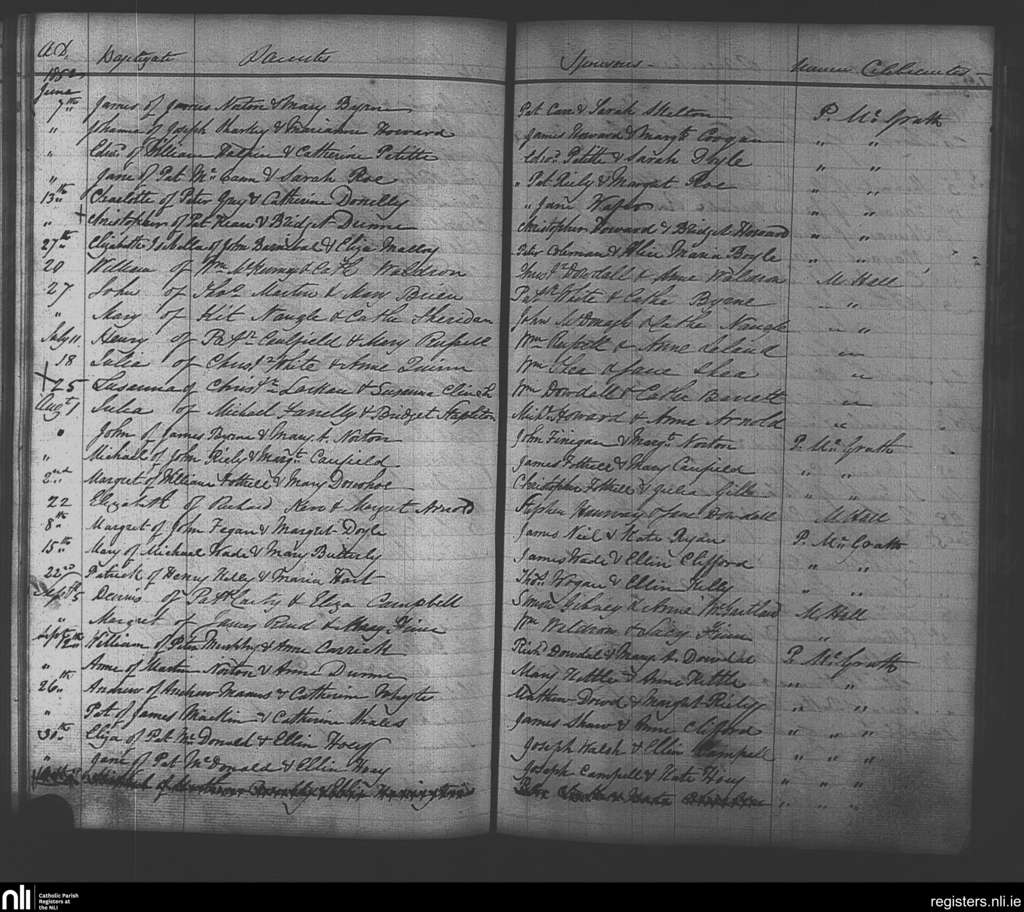 A.D. Baptizati Parentes Sponsores Nomen Celebrantes
1852
June
7th James of James Norton & Mary Byrne Pat Carr & Sarah Skelton P. McGrath
" of Joseph Hartley & Marianne Howard James Howard & Margt. Grogan " "
" Edwd. of William Halpin & Catherine Petitte Edwd. Petitte & Sarah Doyle " "
" Jane of Pat McCann & Sarah Roe " Pat Riely & Margat Roe " "
13th Charlotte of Peter Guy & Catherine Donelly " Jane " "
" Christopher of Pat Kean & Bridget Dunne Christopher Howard & Bridget Howard " "
27th Elizabeth Isabella of John Barnwal & Eliza Malloy Peter Coleman & Maria Boyle " "
20 William of Wm. & Cath. Waldron & Anne Waldron M Hall
27 John of Thos. Martin & Mary Brien Patk. White & Cathe Byrne " "
" Mary of Kit Naugle & Cathe Sheridan John McDonagh & Cathe Naugle " "
July 11 Henry of Patk. Caulfield & Mary Russell Wm & Anne Leland "
18 Julia of Chrisr. White & Anne Quinn Wm Shea & Jane Shea "
25 Susanna of Christr. & Susanna Clinch Wm Dowdall & Cathe Barrett "
Augt. 1 Julia of Michael Farrelly & Bridget Michl. Howard & Anne Arnold "
" John of James Byrne & Margt. Norton John Finegan & Margt. Norton P. McGrath
" Michael of John Riely & Margt. Caufield James Fottrell & Mary Caufield " "
2nd Margret of William Fottrell & Mary Donohoe Christopher Fottrell & Julia " "
22 Elizabeth of Richard & Margret Arnold Stephen & Jane Dowdall M Hall
8th Margret of John Fagan & Margret Doyle James Neil & Kate Ryan P. McGrath
15th Mary of Michael Wade & Mary Butterly James Wade & Ellin Clifford " "
22nd Patrick of Henry Kelly & Maria Hart Thos. Hogan & Ellin Kelly " "
Sept. 5 Dennis of Patk. & Eliza Campbell Simon Gibney & Anne McPartland M Hall
" Margret of James & Mary Wm Waldron & Lucy "
Septr. 12th William of Peter Murphy & Anne Carrick Richd. Dowdal & Margt. Dowdal P. McGrath
" Anne of Martin Norton & Anne Dunne Mary Kettle & Anne Kettle " "
26th Andrew of Andrew & Catherine Whyte Mathew Dowd & Margret Riely " "
" Pat of James Mackin & Catherine James Shaw & Anne Clifford " " "
30th Eliza of Pat McDonald & Ellin Hoey Joseph Walsh & Ellin Campell " " "
" Jane of Pat McDonald & Ellin Hoey Joseph Campell & Kate Hoey " " "
" " "
nli Catholic Parish Registers at the NLI
registers.nli.ie